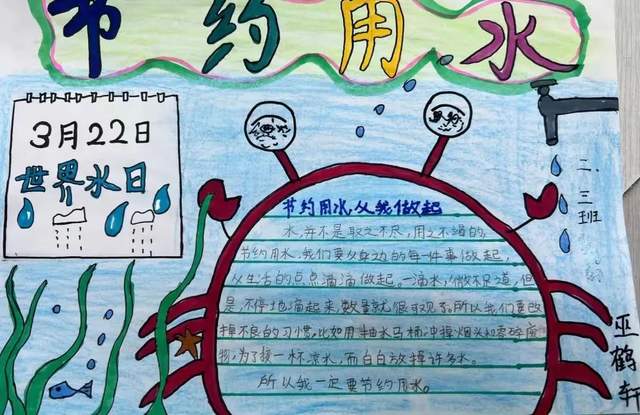 节约用水
3月22日
世界水日
节约用水,从我做起
水,并不是取之不尽,用之不竭的。
节约用水,我们要从身边的每一件事做起,
从生活的点点滴滴做起。一滴水,微不足道,但
是,不停地滴起来,数量就很可观了。所以我们要改
掉不良的习惯,比如用抽水马桶冲掉烟头和零碎废
物,为了接一杯凉水,而白白放掉许多水。
所以我一定要节约用水。
二、三班
巫鹤轩